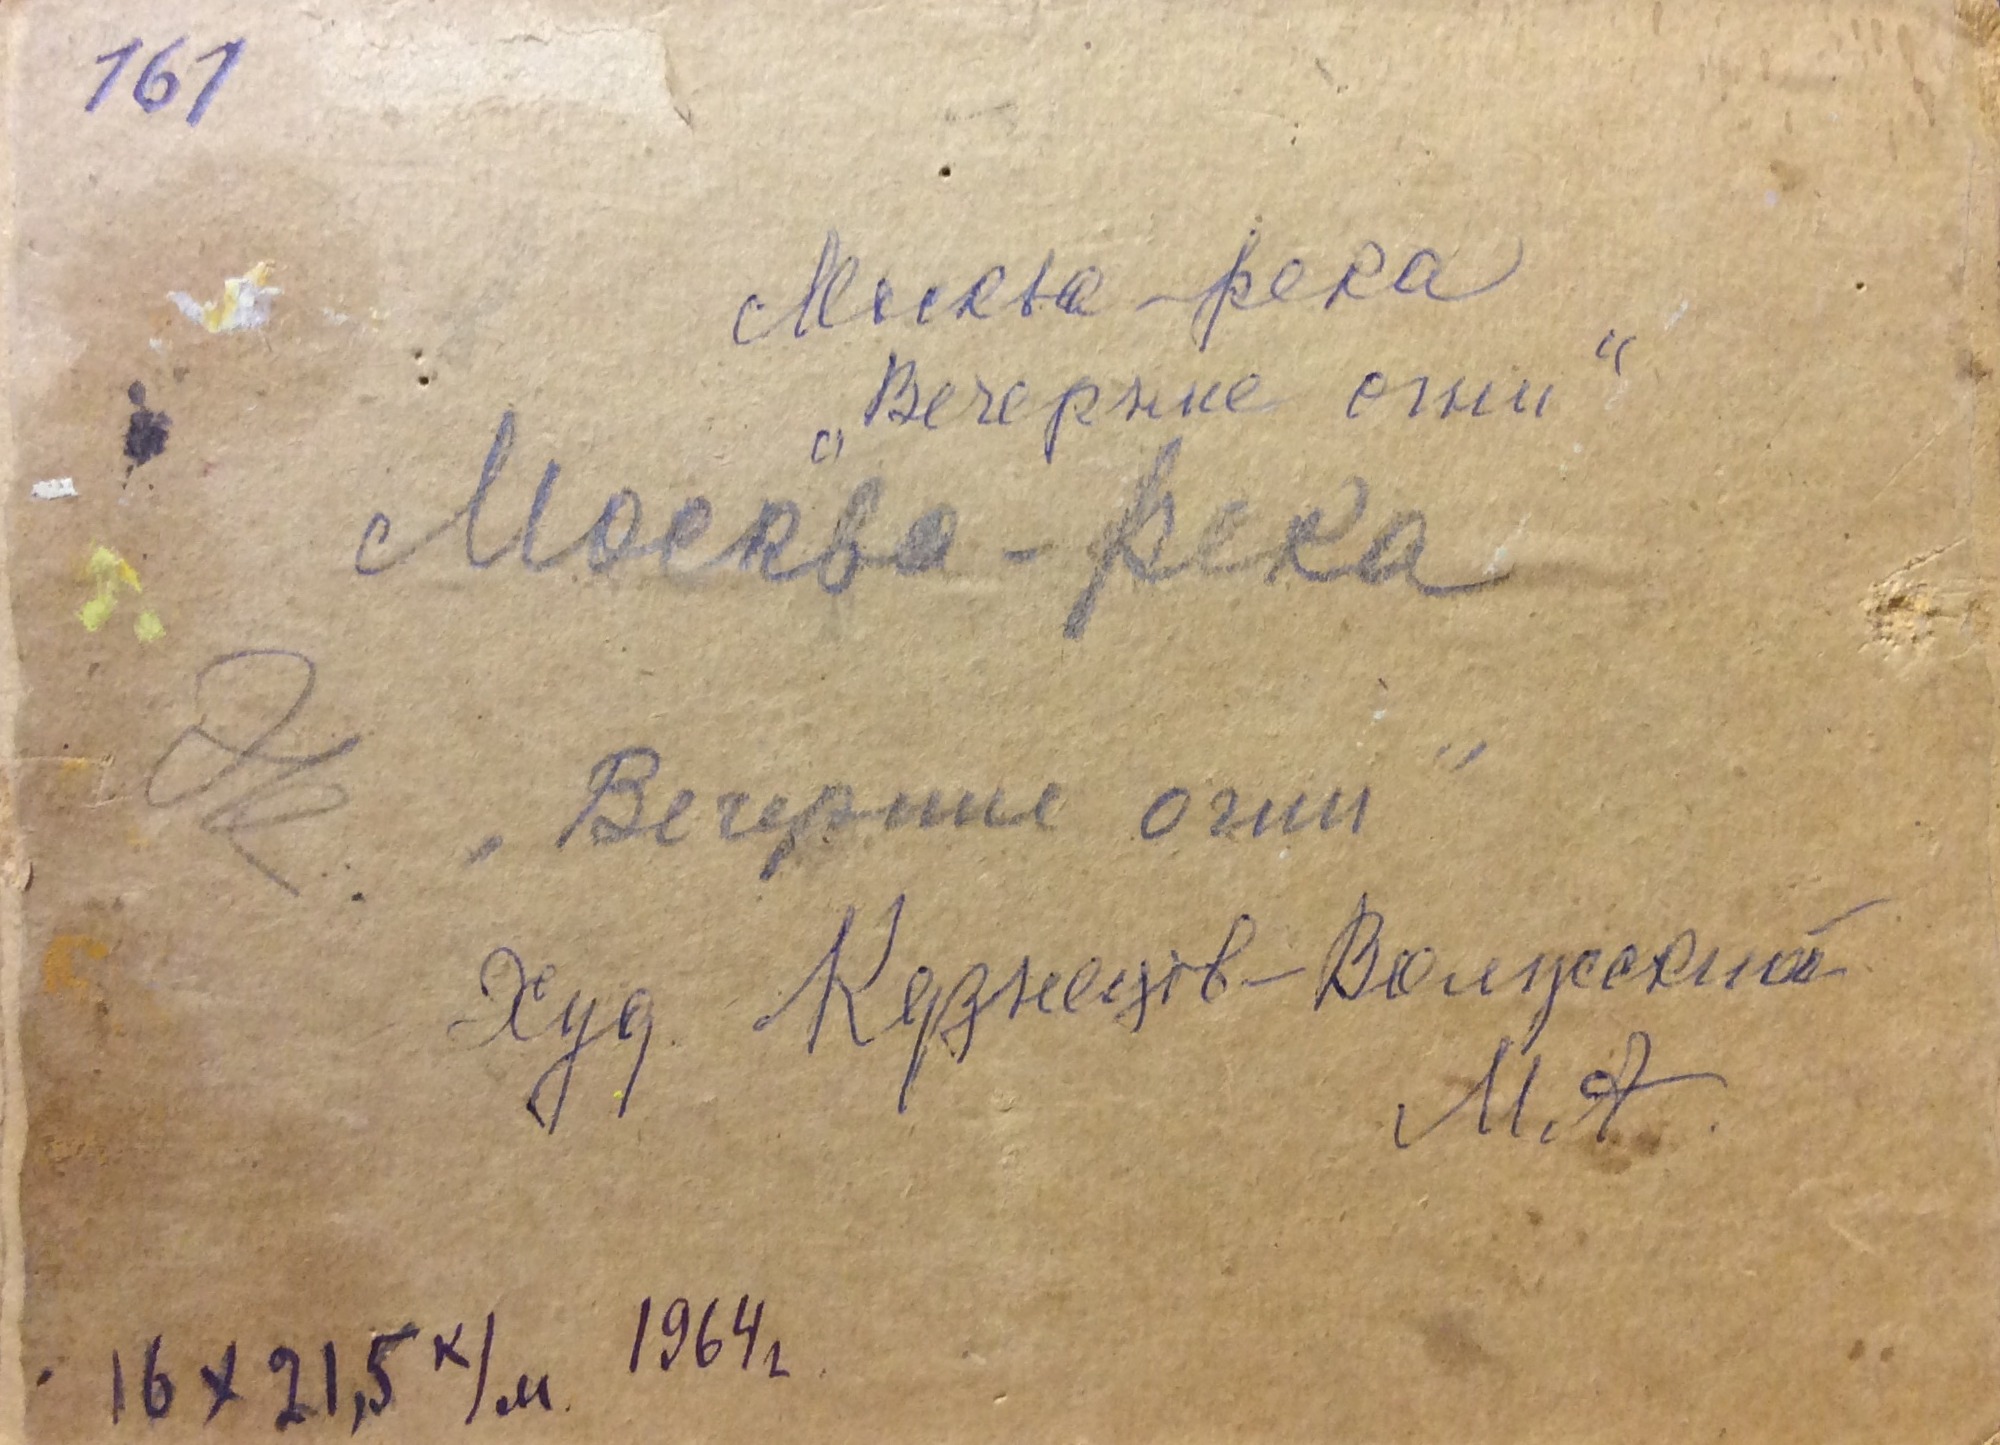 161
Москва-река
„Вечерние огни“
Москва-река
„Вечерние огни"
Худ. Кузнецов-Волжский
М.А.
16 х 21,5 к/м. 1964 г.